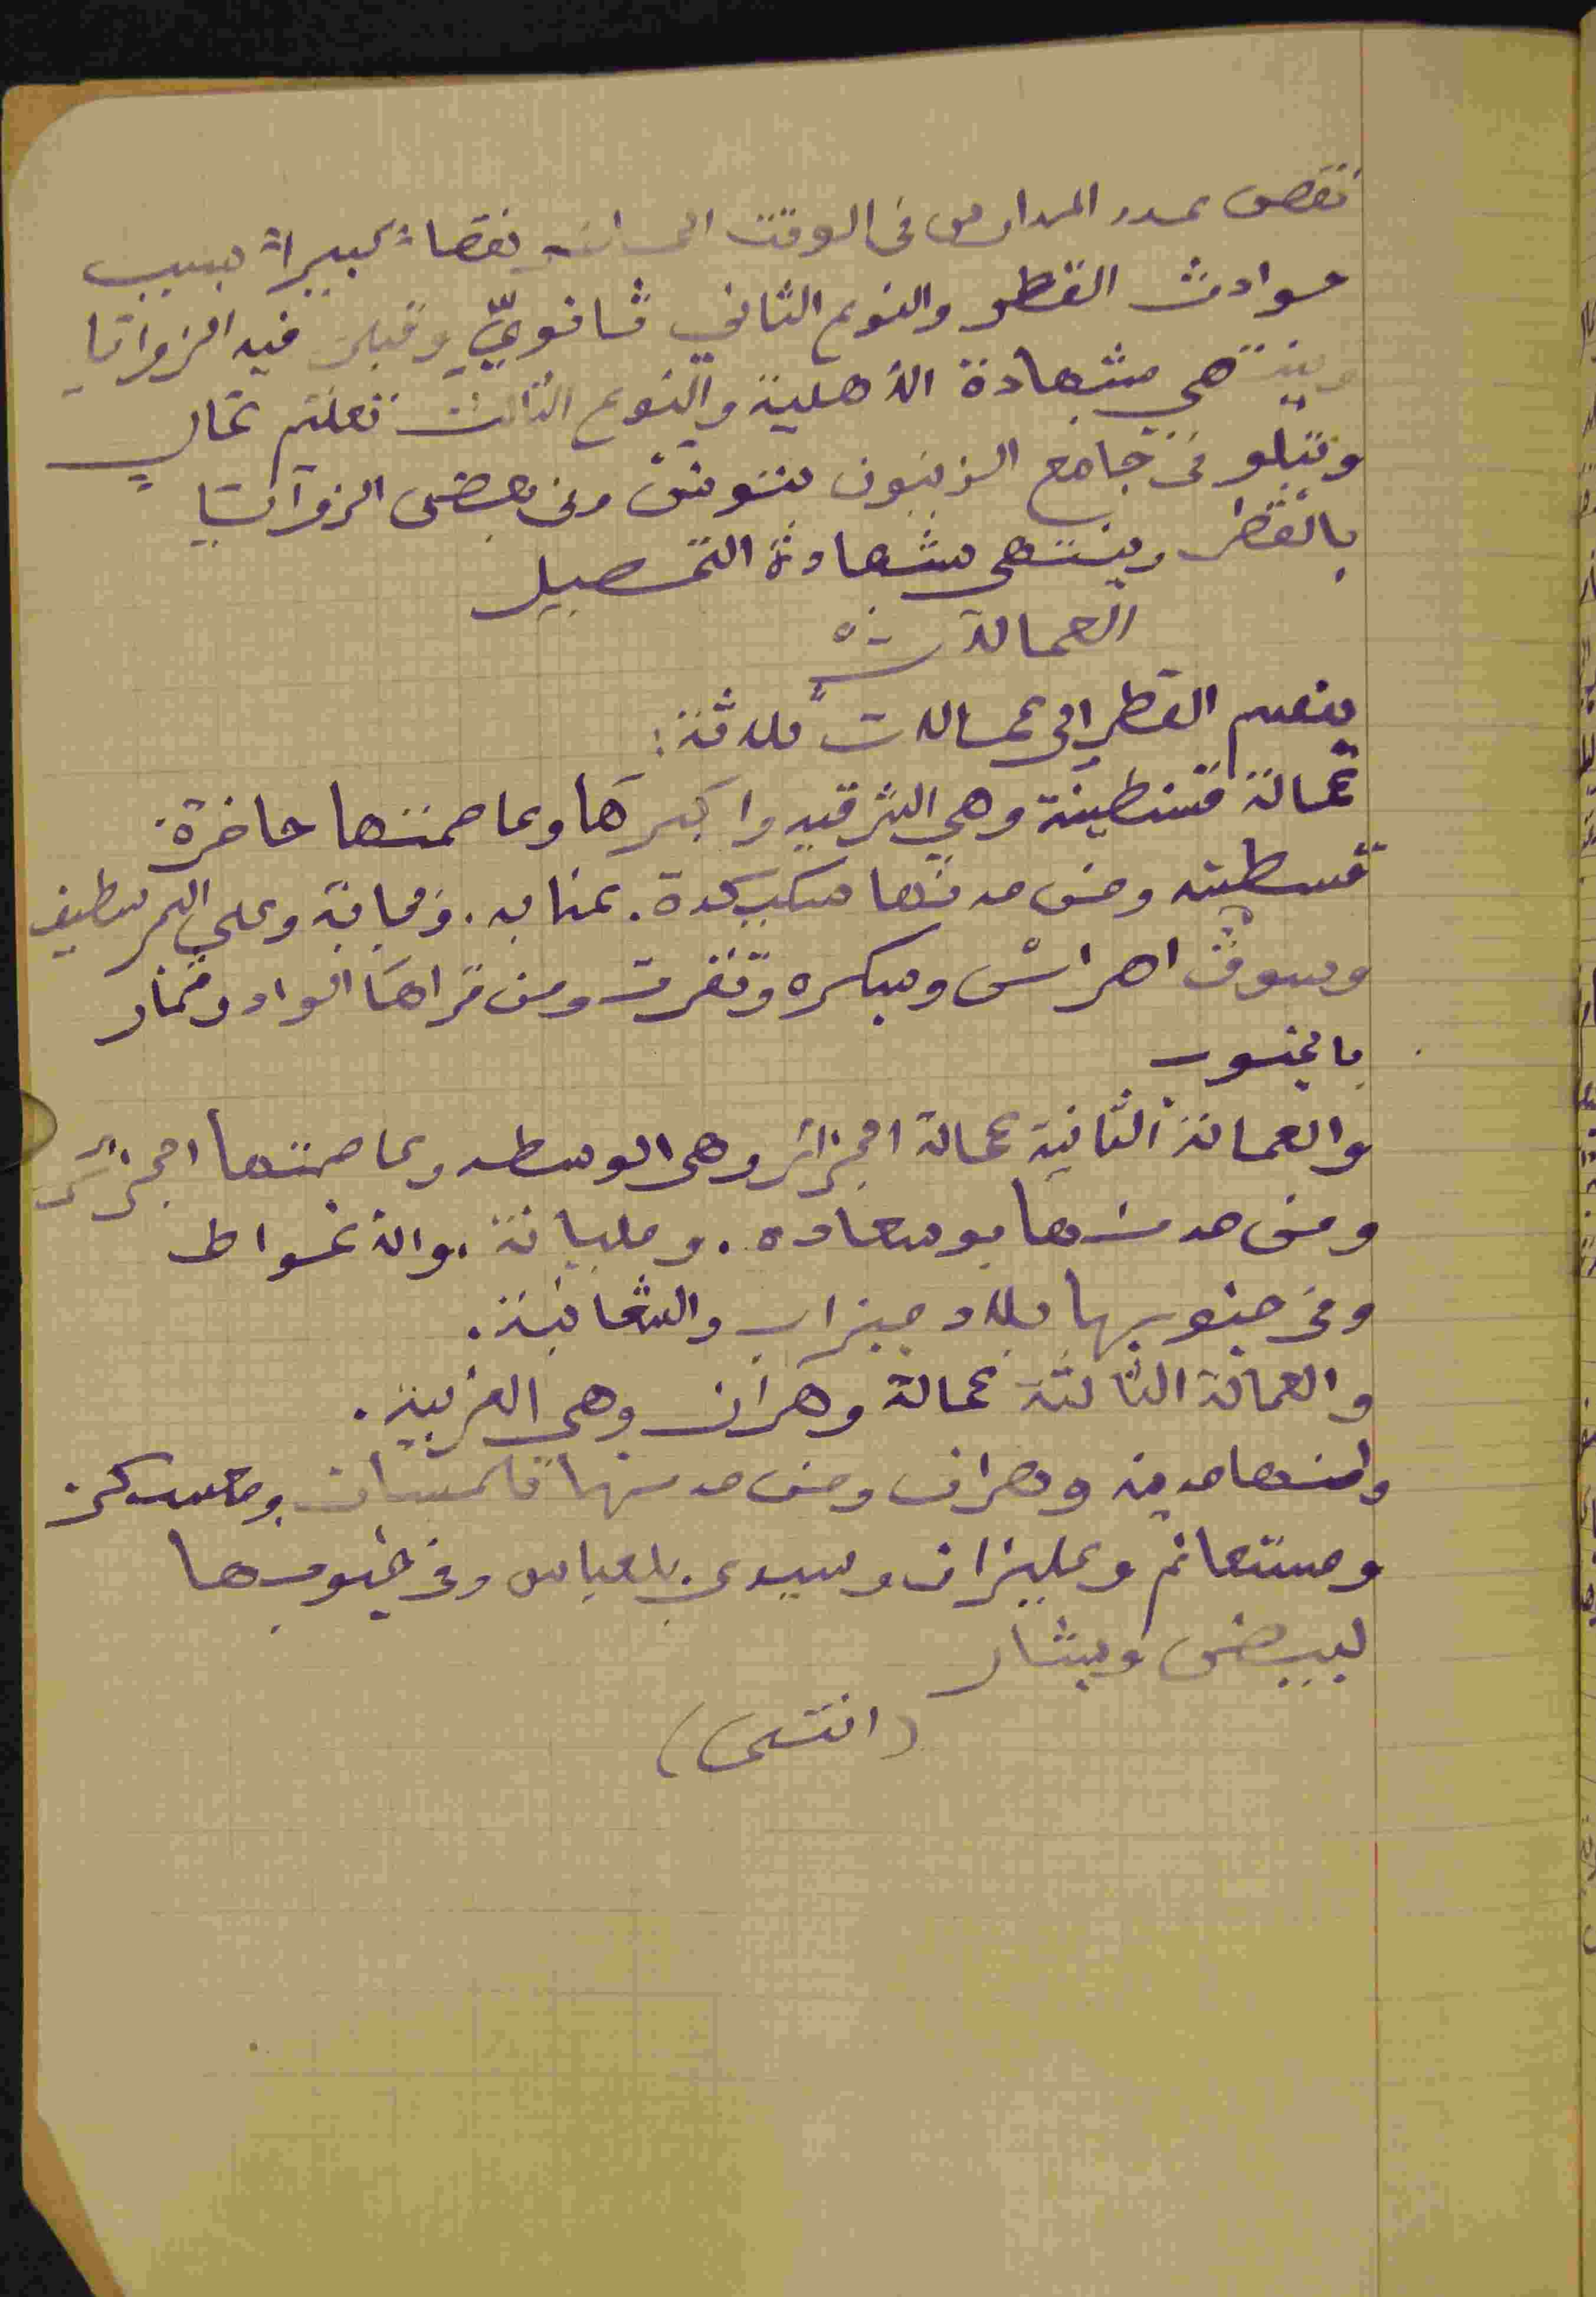 نقص عدد المدارس في الوقت الحاضر نقصا كبيراً بسبب
حوادث القطر والنوع الثاني ثانويّ وقبلت فيه الزوايا
وينتهي بشهادة الأهلية والنوع الثالث تعليم عال
ويتلو في جامع الزيتون بتونس وفي بعض الزوايا
بالقطر وينتهي بشهادة التحصيل
العمالات
ينقسم القطر الى عمالات ثلاثة:
عمالة قسنطينة وهي الشرقيه واكبرها وعاصمتها حاضرة
قسطينه ومن مدنها سكيكدة. عنابه. وبجاية وعلي البحر سطيف
وسوق اهراس وبسكره وتقرت ومن قراها الواد وقمار
بالجنوب
والعمالة الثانية عمالة الجزائر وهي الوسطى وعاصمتها الجزائر
ومن مدنها بوسعاده. ومليانة. والاغواط
وفي جنوبها بلاد ميزاب والشعانبة.
والعمالة الثالثة عمالة وهران وهي الغربية.
وامها مدينه وهران ومن مدنها تلمسان ومعسكر
ومستغانم وغليزان وسيدي بلعباس وفي جنوبها
لبيض وبشار
(انتهى)